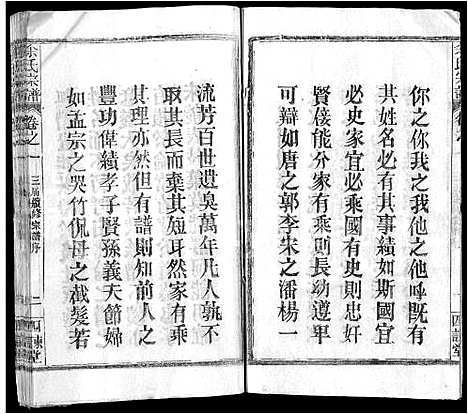 你之你我之我他之他呼既有
其姓名必有其事績如斯國宜
必史家宜必乘國有史則忠奸
賢佞能分家有乘則長幼遵甲
可辯如唐郭李朱之潘楊一
流芳百世遺臭萬年凡人孰不
取其長而棄其短耳然家有乘
其理亦然但有譜則知前人之
豐功偉績孝子賢孫義夫節婦
如孟宗之哭竹侃母之截髮若
余氏宗譜
卷之一
三屆續修宗譜序
二
四諫堂